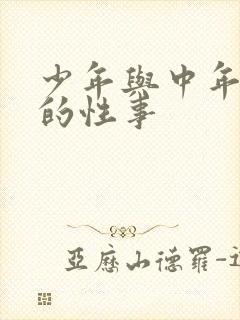 少年與中年
的性事
亞歷山德羅-